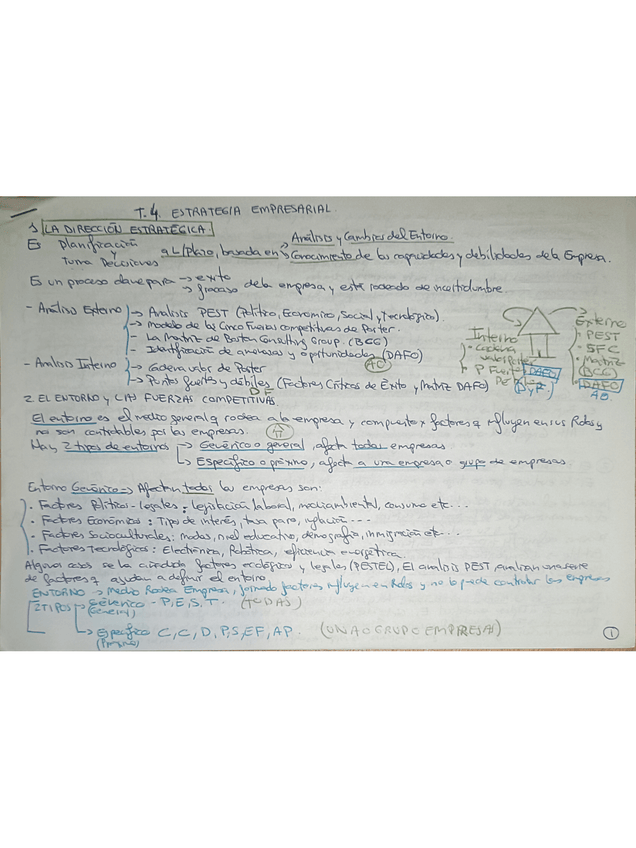 T.4. ESTRATEGIA EMPRESARIAL.
1. LA DIRECCIÓN ESTRATÉGICA.
Es Planificación y Toma Decisiones a L/Plazo, basada en → Análisis y Cambios del Entorno.
→ Conocimiento de las capacidades y debilidades de la Empresa.
Es un proceso clave para → éxito
→ fracaso de la empresa y está rodeado de incertidumbre.
- Análisis Externo → Análisis PEST (Político, Económico, Social y Tecnológico).
→ Modelo de las Cinco Fuerzas competitivas de Porter.
- La Matriz de Boston Consulting Group. (BCG)
- Identificación de amenazas y oportunidades (DAFO)
AO
- Análisis Interno → Cadena valor de Porter
→ Puntos fuertes y débiles (Factores Críticos de Éxito y Matriz DAFO)
D F
Interno
• Cadena valor Porter
• P Fuertes
DAFO
D y F.
Externo
• PEST
• 5FC
• Matriz (BCG)
DAFO
AO
2. EL ENTORNO y LAS FUERZAS COMPETITIVAS
El entorno es el medio general q rodea a la empresa y compuesto x factores q influyen en sus Rdos y
no son controlables por las empresas.
Hay 2 tipos de entornos → Genérico o general, afecta todas empresas
→ Específico o próximo, afecta a una empresa o grupo de empresas
Entorno Genérico → Afectan todas las empresas son:
• Factores Político-legales: Legislación laboral, medioambiental, consumo etc...
• Factores Económicos: Tipos de interés, tasa paro, inflación...
• Factores Socioculturales: modas, nivel educativo, demografía, inmigración etc...
• Factores Tecnológicos: Electrónica, Robótica, eficiencia energética.
Algunos casos se la añade factores ecológicos y legales (PESTEL), El análisis PEST, analizan una serie
de factores q ayudan a definir el entorno
ENTORNO → Medio Rodea Empresa, formado factores influyen en Rdos y no lo puede controlar las empresas
2 TIPOS → Genérico - P, E, S, T. (TODAS)
(General)
→ Específico C, C, D, P, S, EF, AP. (UNA O GRUPO EMPRESAS)
(Próximo)
1